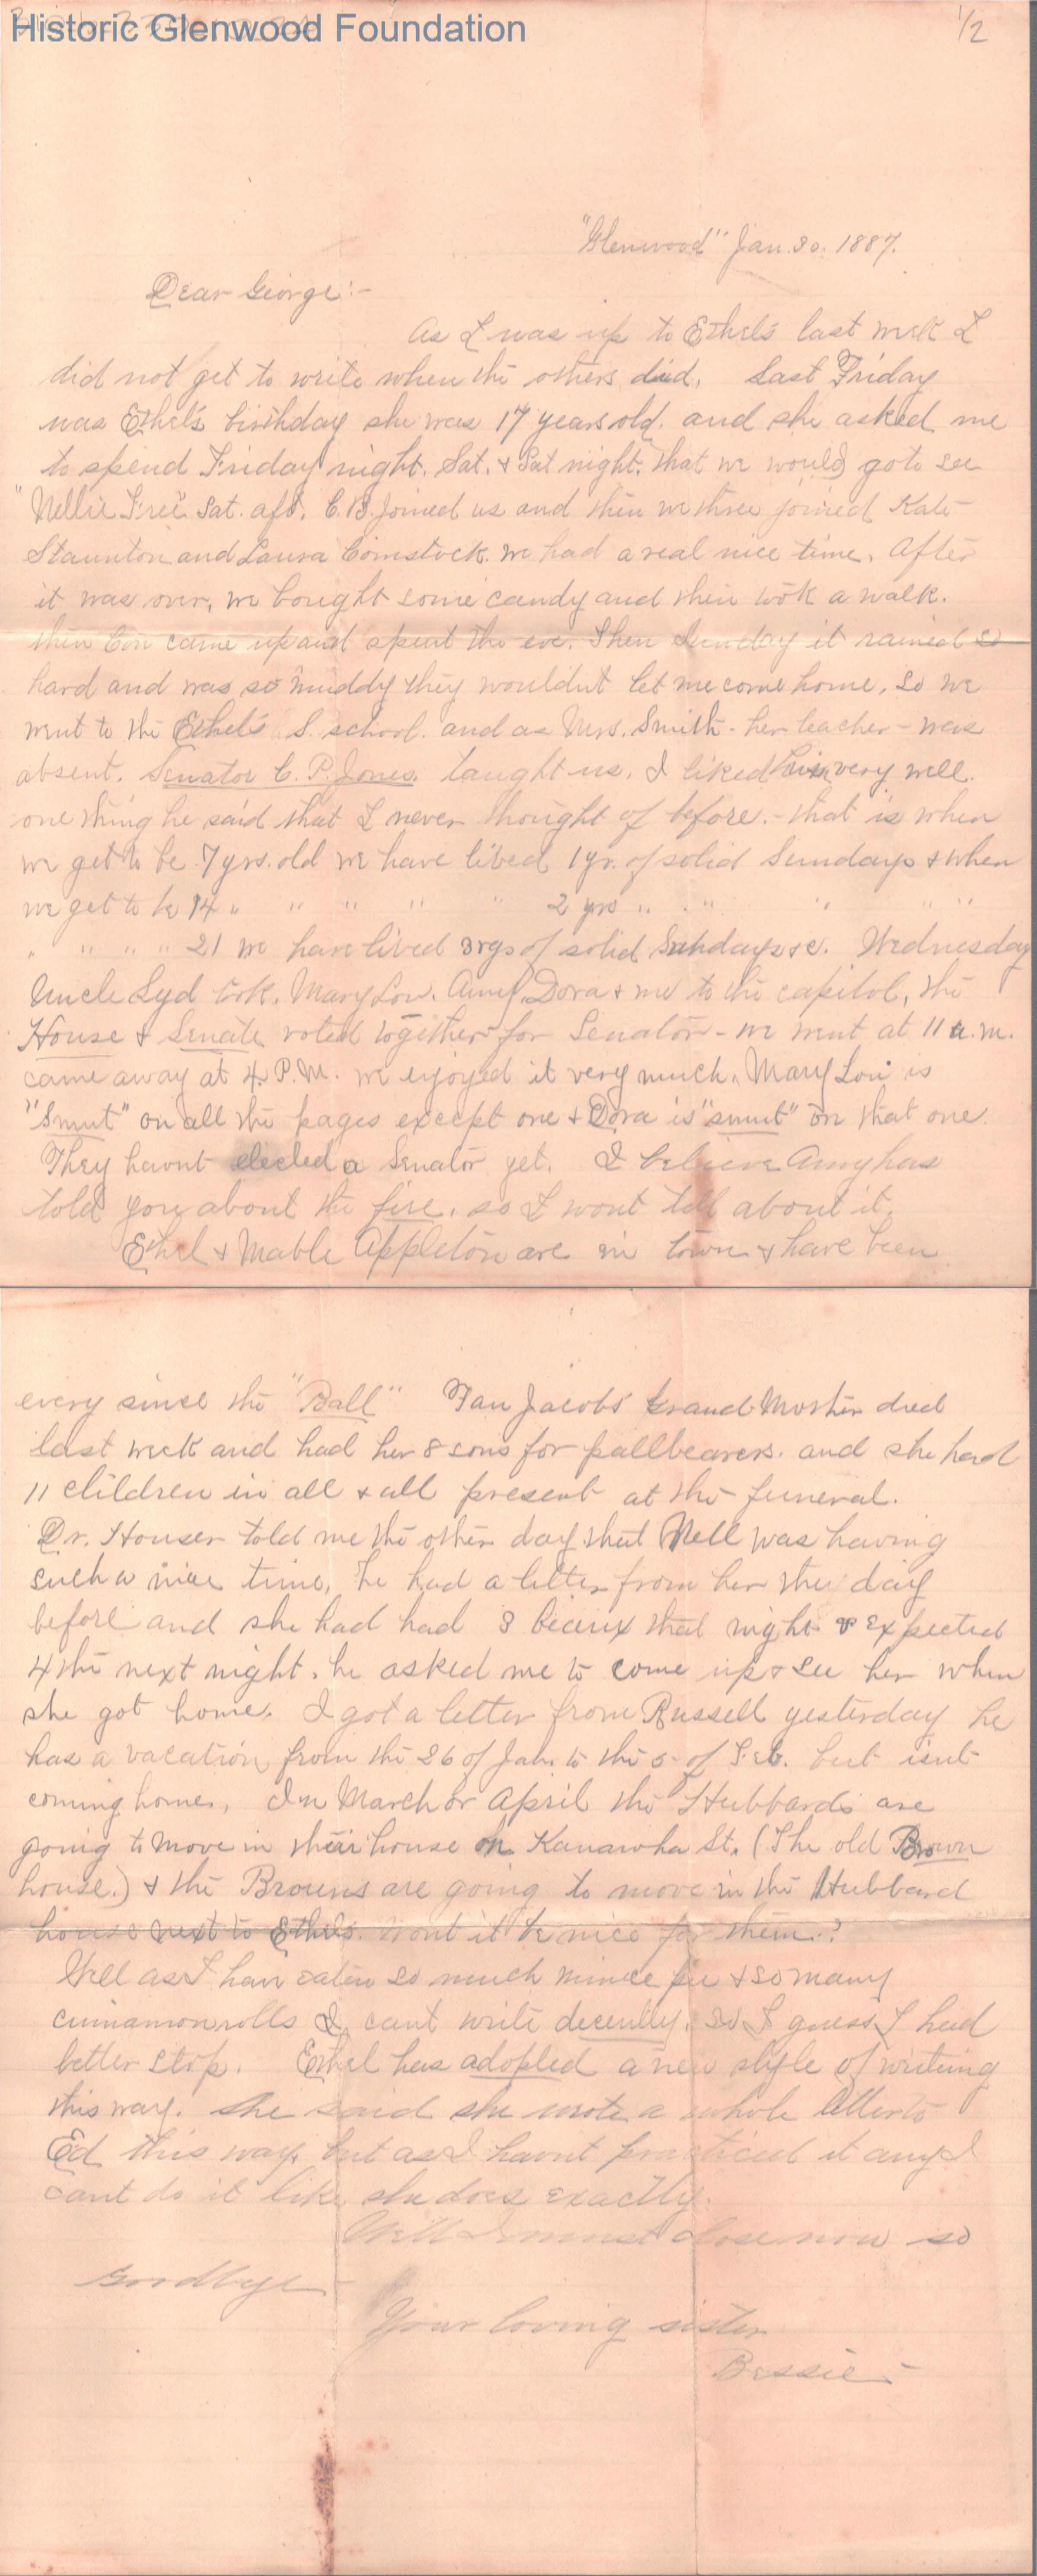 Historic Glenwood Foundation
1/2
"Glenwood" Jan. 30. 1887.
Dear George:-
As I was up to Ethel's last week I
did not get to write when the others did. Last Friday
was Ethel's birthday she was 17 years old. and she asked me
to spend Friday night. Sat. & Sat night. that we would go to see
"Nellie Free" Sat. aft. C.B. joined us and then we three joined Kate
Staunton and Laura Comstock. we had a real nice time. After
it was over, we bought some candy and then took a walk.
then Con came up and spent the eve. Then Sunday it rained so
hard and was so muddy they wouldnt let me come home. So we
went to the Ethel's S. school. and as Mrs. Smith - her teacher - was
absent. Senator C. P. Jones. taught us. I liked him very well.
one thing he said that I never thought of before. - that is when
we get to be 7 yrs. old we have lived 1 yr. of solid Sundays & when
we get to be 14 " " " " " 2 yrs " " " " "
" " " " 21 we have lived 3 yrs of solid Sundays &c. Wednesday
Uncle Syd took. Mary Lou. Amy, Dora & me to the capitol, the
House & Senate voted together for Senator - we went at 11 a.m.
came away at 4. P.M. we enjoyed it very much. Mary Lou is
"Smut" on all the pages except one & Dora is "smut" on that one.
They havnt elected a Senator yet. I believe Amy has
told you about the fire. so I wont tell about it.
Ethel & Mable Appleton are in town & have been
every since the "Ball" Fan Jacobs' Grand-Mother died
last week and had her 8 sons for pallbearers. and she had
11 children in all & all present at the funeral.
Dr. Houser told me the other day that Nell was having
such a nice time, he had a letter from her the day
before and she had had 8 beaux that night & expected
4 the next night. he asked me to come up & see her when
she got home. I got a letter from Russell yesterday he
has a vacation from the 26 of Jan. to the 5 of Feb. but isnt
coming home. In March or April the Hubbards are
going to move in their house on Kanawha St. (The old Brown
house.) & the Browns are going to move in the Hubbard
house next to Ethel's. wont it be nice for them.?
Well as I have eaten so much mince pie & so many
cinnamon rolls I cant write decently. so I guess I had
better stop. Ethel has adopted a new style of writing
this way. she said she wrote a whole letter to
Ed this way. but as I havnt practiced it any I
cant do it like she does exactly.
Well I must close now so
Goodbye
Your loving sister
Bessie -